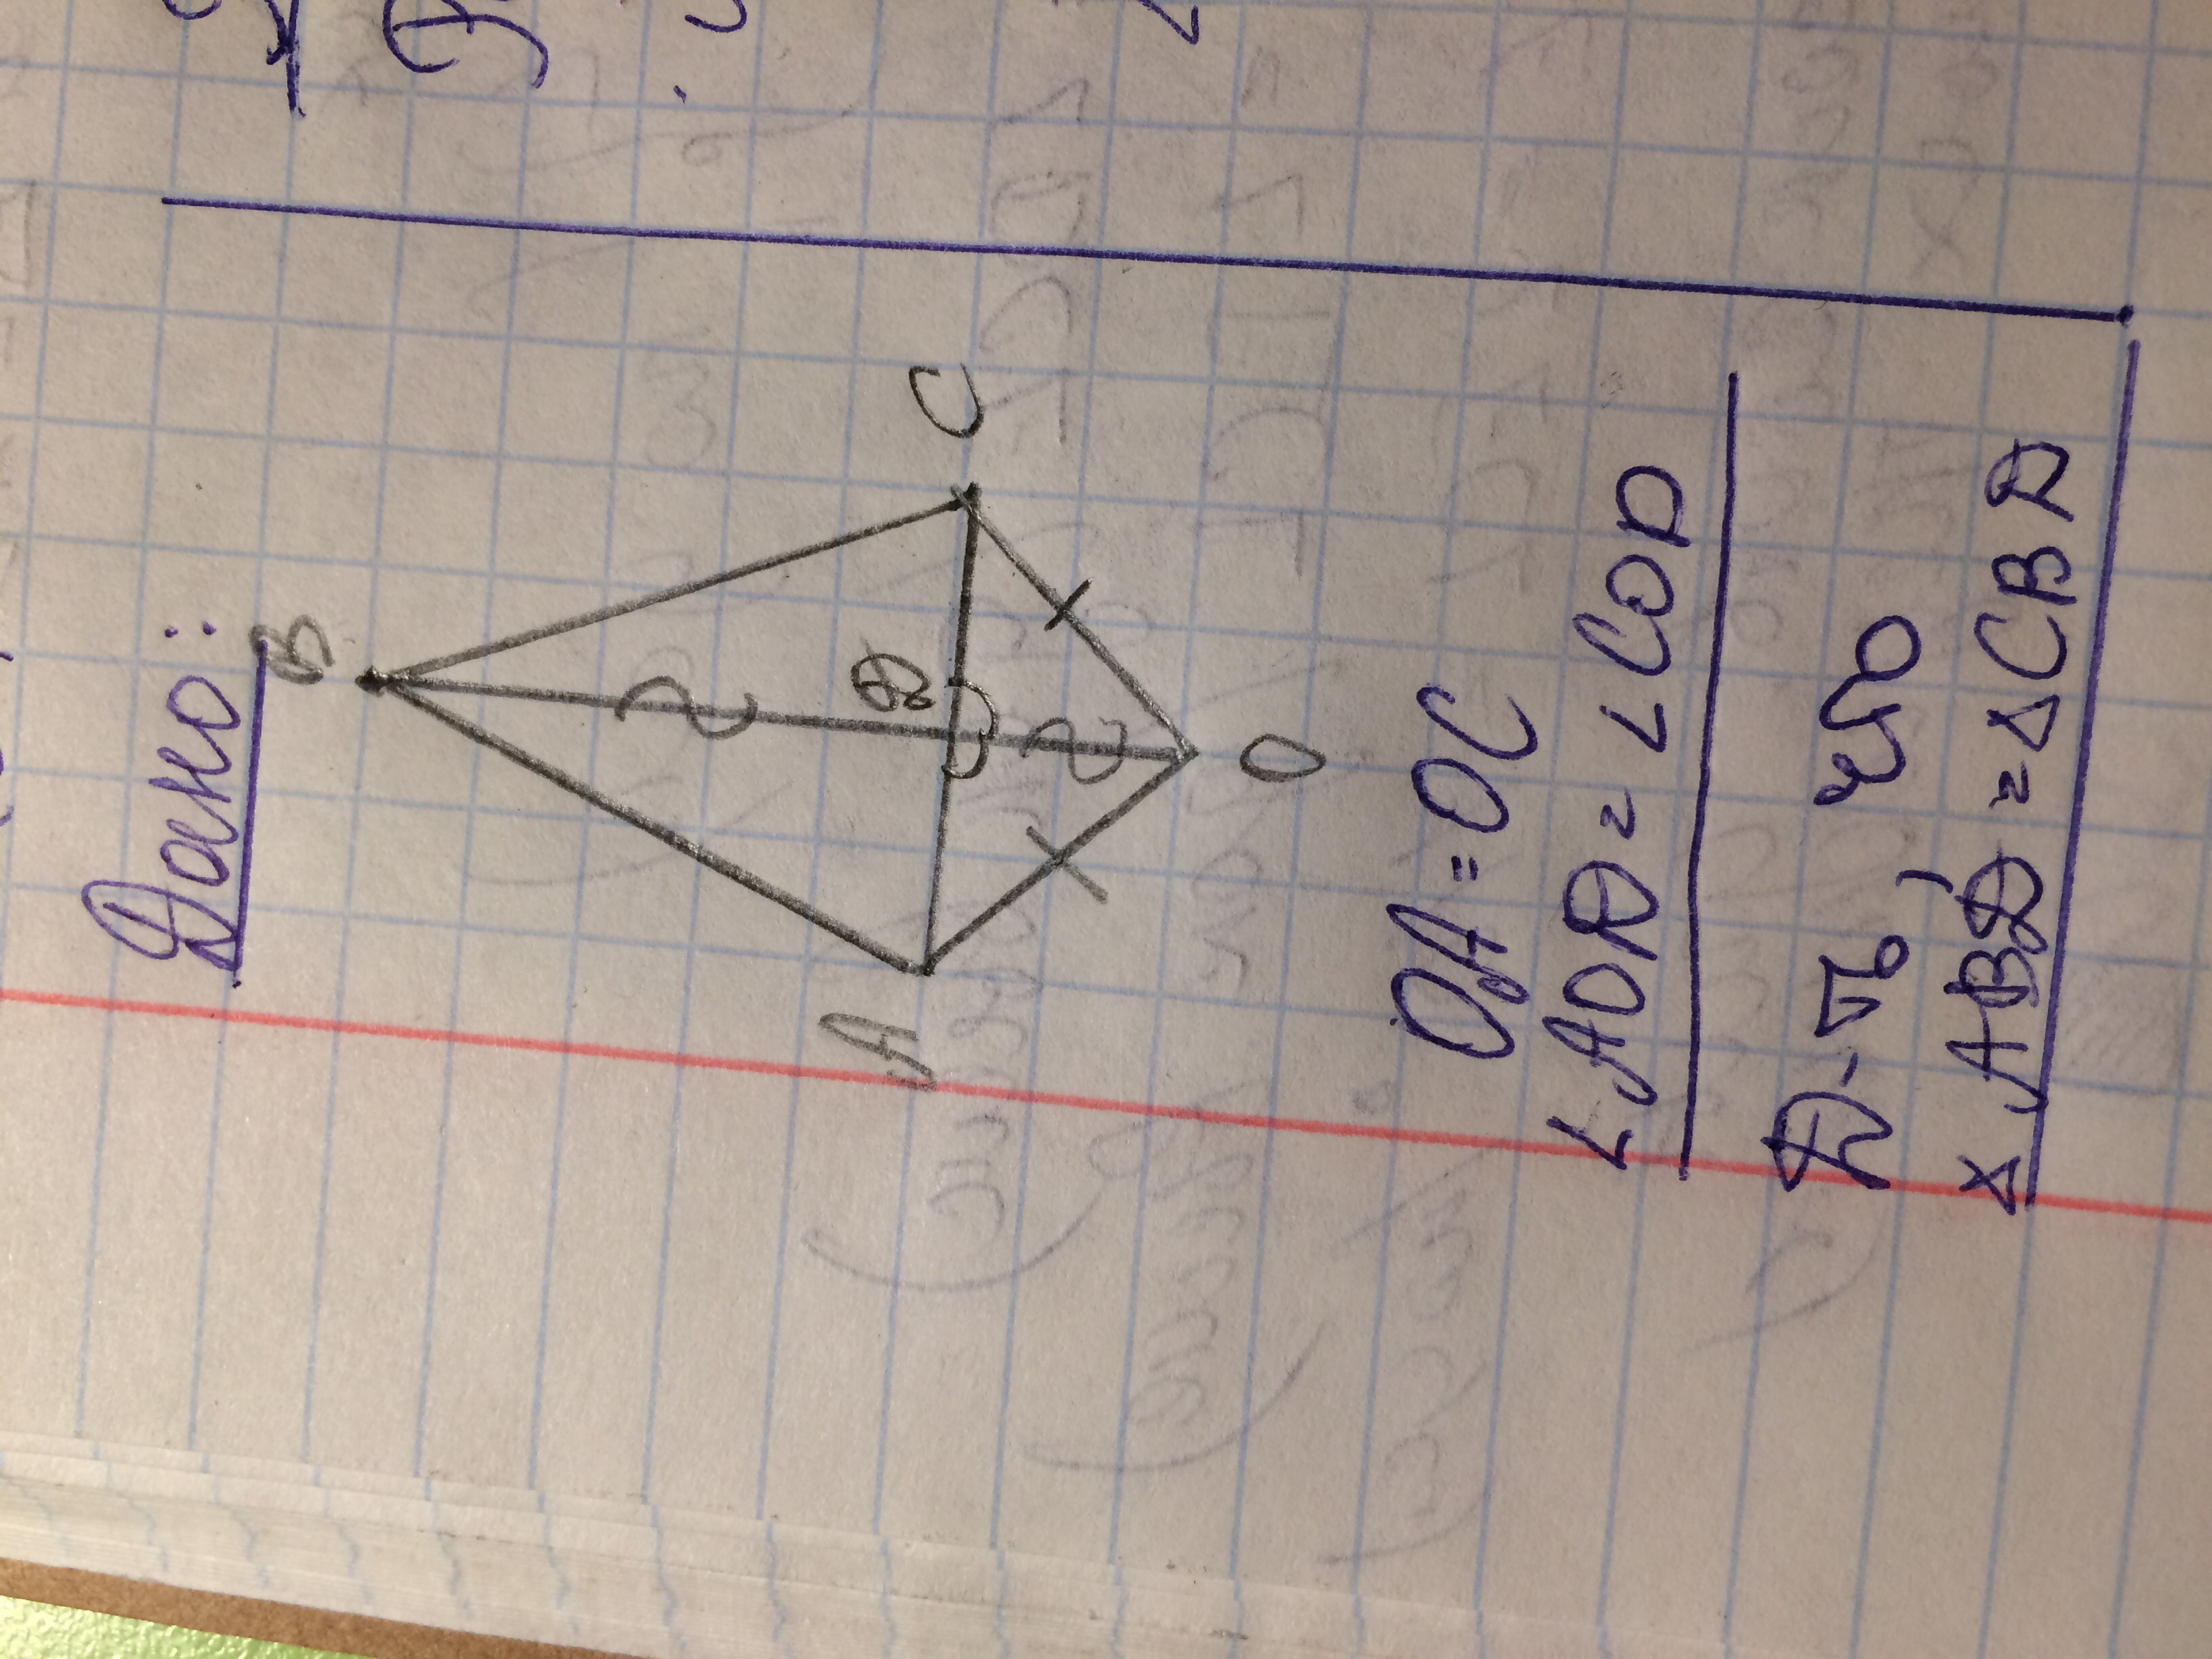 Дано:
B
A
D
C
O
OA = OC
∠AOD = ∠COD
Д-ть, что
△ ABD = △ CBD